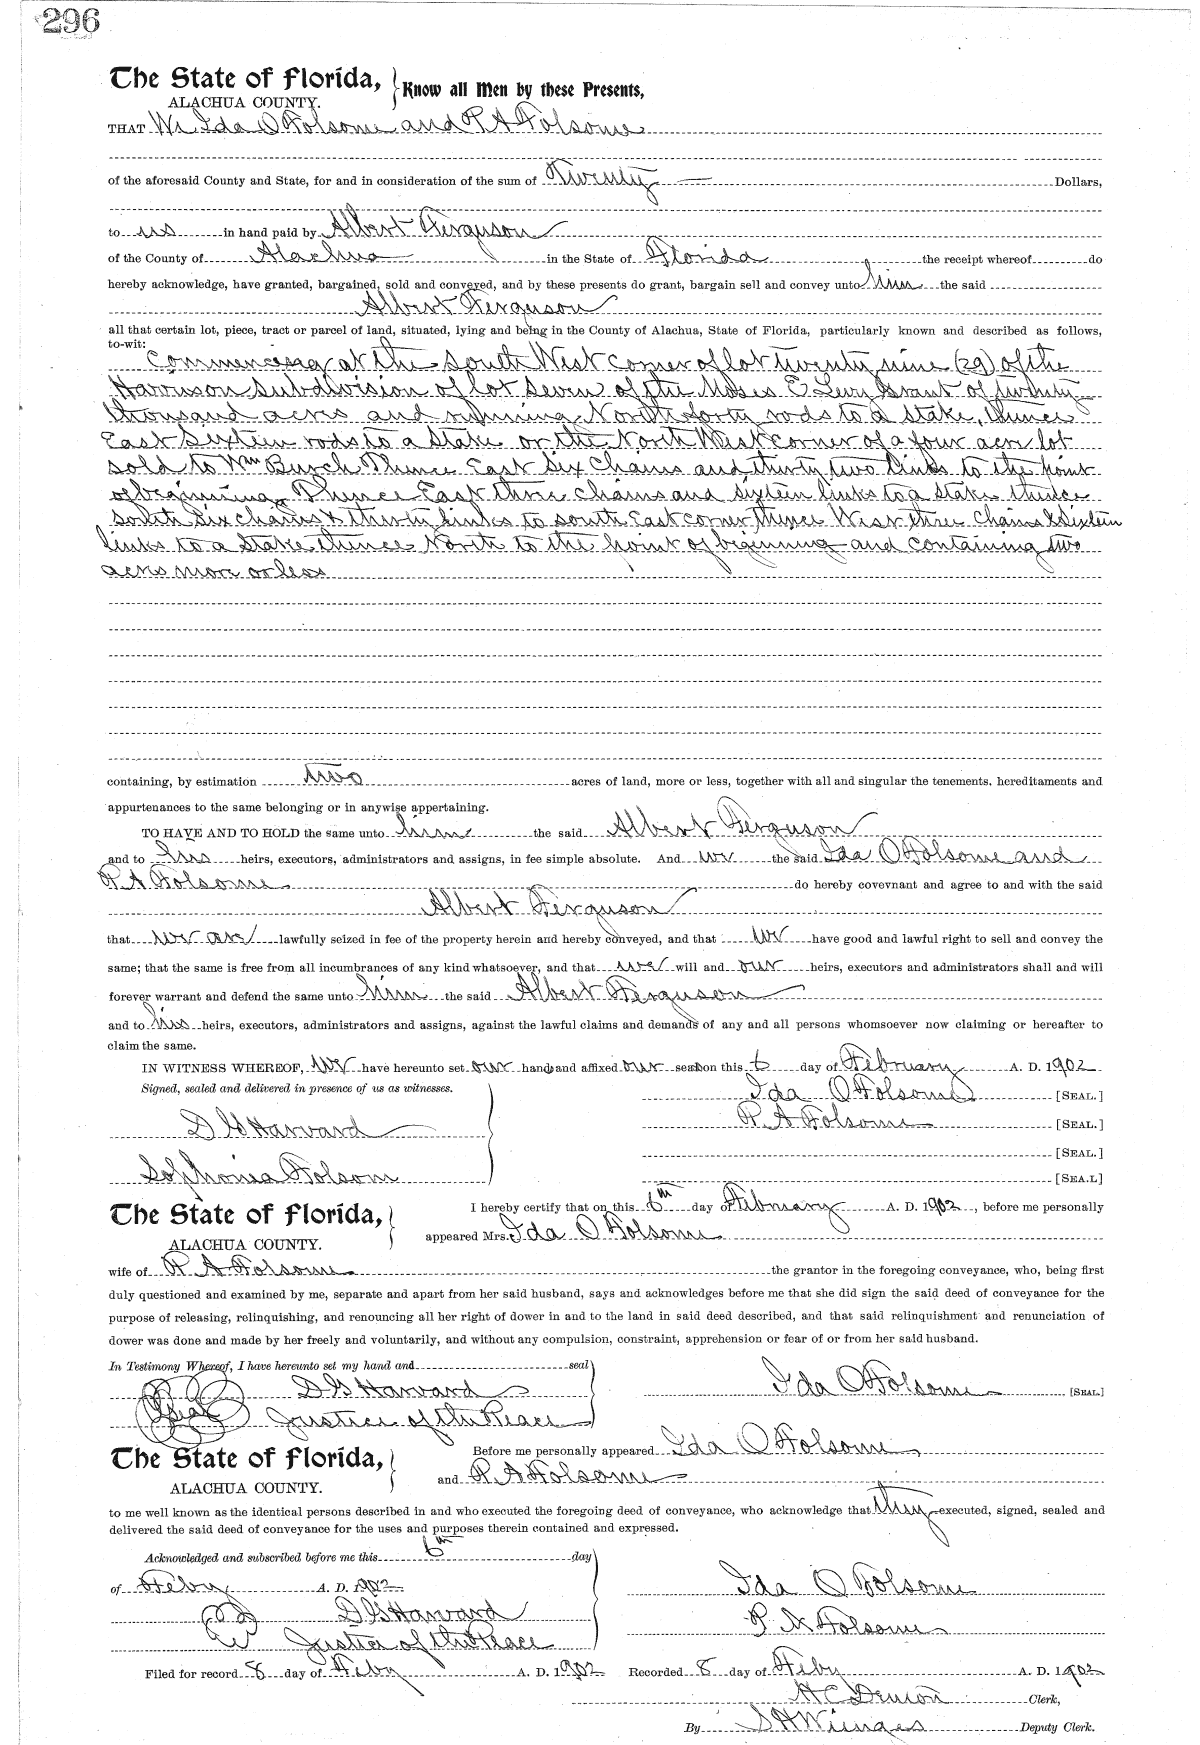 296
The State of Florida,
Know all Men by these Presents,
ALACHUA COUNTY.
THAT We Ida O Folsome and R A Folsome
of the aforesaid County and State, for and in consideration of the sum of Twenty Dollars,
to us in hand paid by Albert Ferguson
of the County of Alachua in the State of Florida the receipt whereof do
hereby acknowledge, have granted, bargained, sold and conveyed, and by these presents do grant, bargain sell and convey unto him the said
Albert Ferguson
all that certain lot, piece, tract or parcel of land, situated, lying and being in the County of Alachua, State of Florida, particularly known and described as follows,
to-wit:
Commencing at the South West corner of lot twenty nine (29) of the
Harrison Subdivision of lot Seven of the Moses E Levy Grant of twenty
thousand acres and running North forty rods to a Stake, thence
East Sixteen rods to a Stake or the North West corner of a four acre lot
sold to Wm Burch Thence East Six Chains and thirty two links to the point
of beginning, Thence East three chains and sixteen links to a stake thence
South Six chains & thirty links to south East corner thence West three chains & Sixteen
links to a stake thence North to the point of beginning and containing two
acres more or less
containing, by estimation two acres of land, more or less, together with all and singular the tenements, hereditaments and
appurtenances to the same belonging or in anywise appertaining.
TO HAVE AND TO HOLD the same unto him the said Albert Ferguson
and to his heirs, executors, administrators and assigns, in fee simple absolute. And we the said Ida O Folsome and
R A Folsome do hereby covevnant and agree to and with the said
Albert Ferguson
that we are lawfully seized in fee of the property herein and hereby conveyed, and that we have good and lawful right to sell and convey the
same; that the same is free from all incumbrances of any kind whatsoever, and that we will and our heirs, executors and administrators shall and will
forever warrant and defend the same unto him the said Albert Ferguson
and to his heirs, executors, administrators and assigns, against the lawful claims and demands of any and all persons whomsoever now claiming or hereafter to
claim the same.
IN WITNESS WHEREOF, we have hereunto set our hand and affixed our seal on this 6 day of February A. D. 1902
Signed, sealed and delivered in presence of us as witnesses.
Ida O Folsome [SEAL.]
D G Harvard
R A Folsome [SEAL.]
[SEAL.]
Sophronia Folsom
[SEA.L]
The State of Florida,
ALACHUA COUNTY.
I hereby certify that on this 6th day of February A. D. 1902, before me personally
appeared Mrs. Ida O Folsome
wife of R A Folsome the grantor in the foregoing conveyance, who, being first
duly questioned and examined by me, separate and apart from her said husband, says and acknowledges before me that she did sign the said deed of conveyance for the
purpose of releasing, relinquishing, and renouncing all her right of dower in and to the land in said deed described, and that said relinquishment and renunciation of
dower was done and made by her freely and voluntarily, and without any compulsion, constraint, apprehension or fear of or from her said husband.
In Testimony Whereof, I have hereunto set my hand and seal
D G Harvard
Ida O Folsome [SEAL.]
Seal
Justice of the Peace
The State of Florida,
ALACHUA COUNTY.
Before me personally appeared Ida O Folsome
and R A Folsome
to me well known as the identical persons described in and who executed the foregoing deed of conveyance, who acknowledge that they executed, signed, sealed and
delivered the said deed of conveyance for the uses and purposes therein contained and expressed.
Acknowledged and subscribed before me this 6th day
of Feby A. D. 1902
Ida O Folsome
D G Harvard
R A Folsome
Justice of the Peace
Filed for record 8 day of Feby A. D. 1902 Recorded 8 day of Feby A. D. 1902
H C Denton Clerk,
By S H Wienges Deputy Clerk.